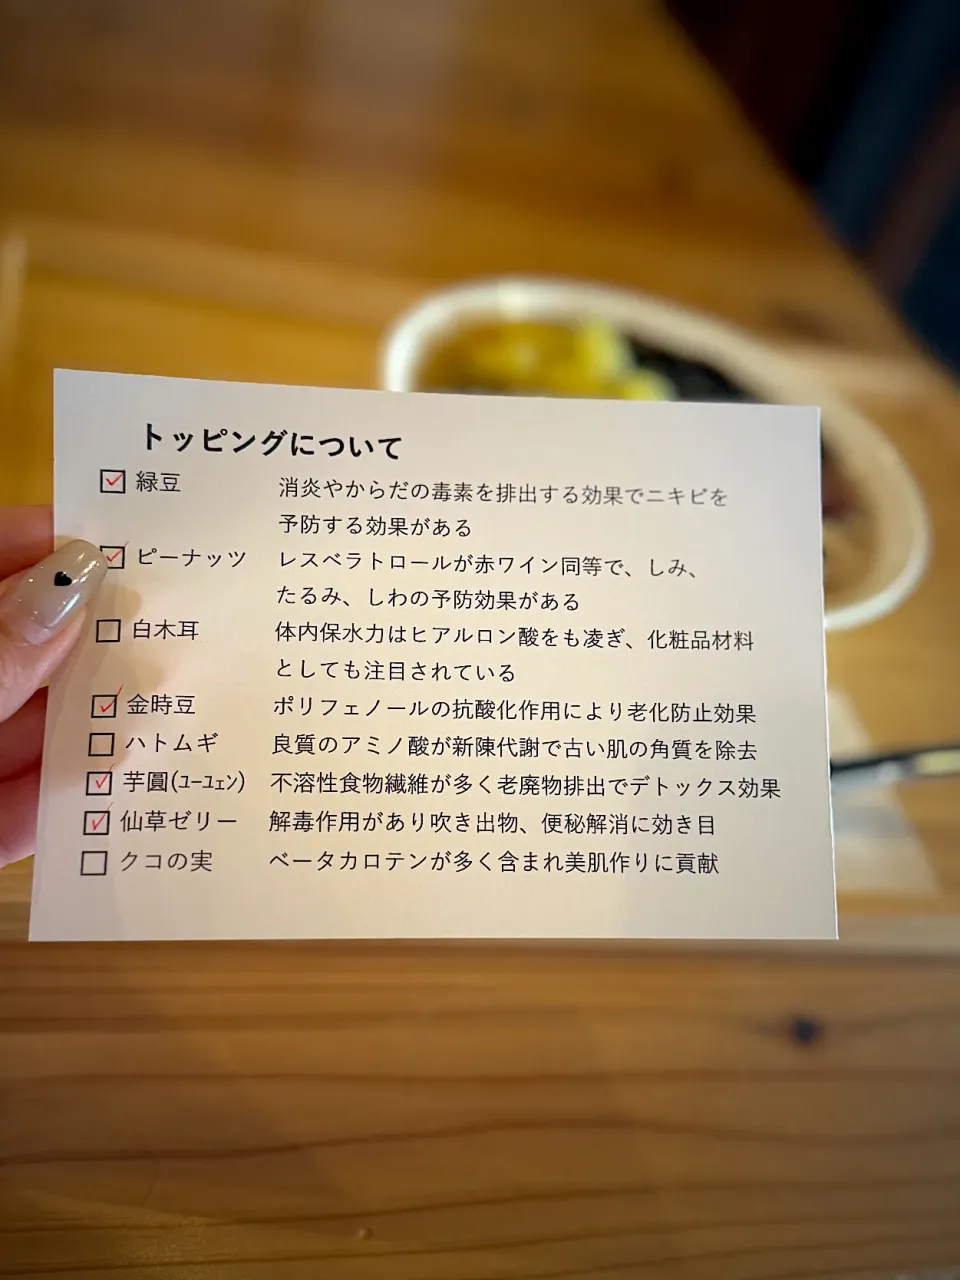 トッピングについて
☑ 緑豆 消炎やからだの毒素を排出する効果でニキビを
予防する効果がある
☑ ピーナッツ レスベラトロールが赤ワイン同等で、しみ、
たるみ、しわの予防効果がある
☐ 白木耳 体内保水力はヒアルロン酸をも凌ぎ、化粧品材料
としても注目されている
☑ 金時豆 ポリフェノールの抗酸化作用により老化防止効果
☐ ハトムギ 良質のアミノ酸が新陳代謝で古い肌の角質を除去
☑ 芋圓(ユーユェン) 不溶性食物繊維が多く老廃物排出でデトックス効果
☑ 仙草ゼリー 解毒作用があり吹き出物、便秘解消に効き目
☐ クコの実 ベータカロテンが多く含まれ美肌作りに貢献